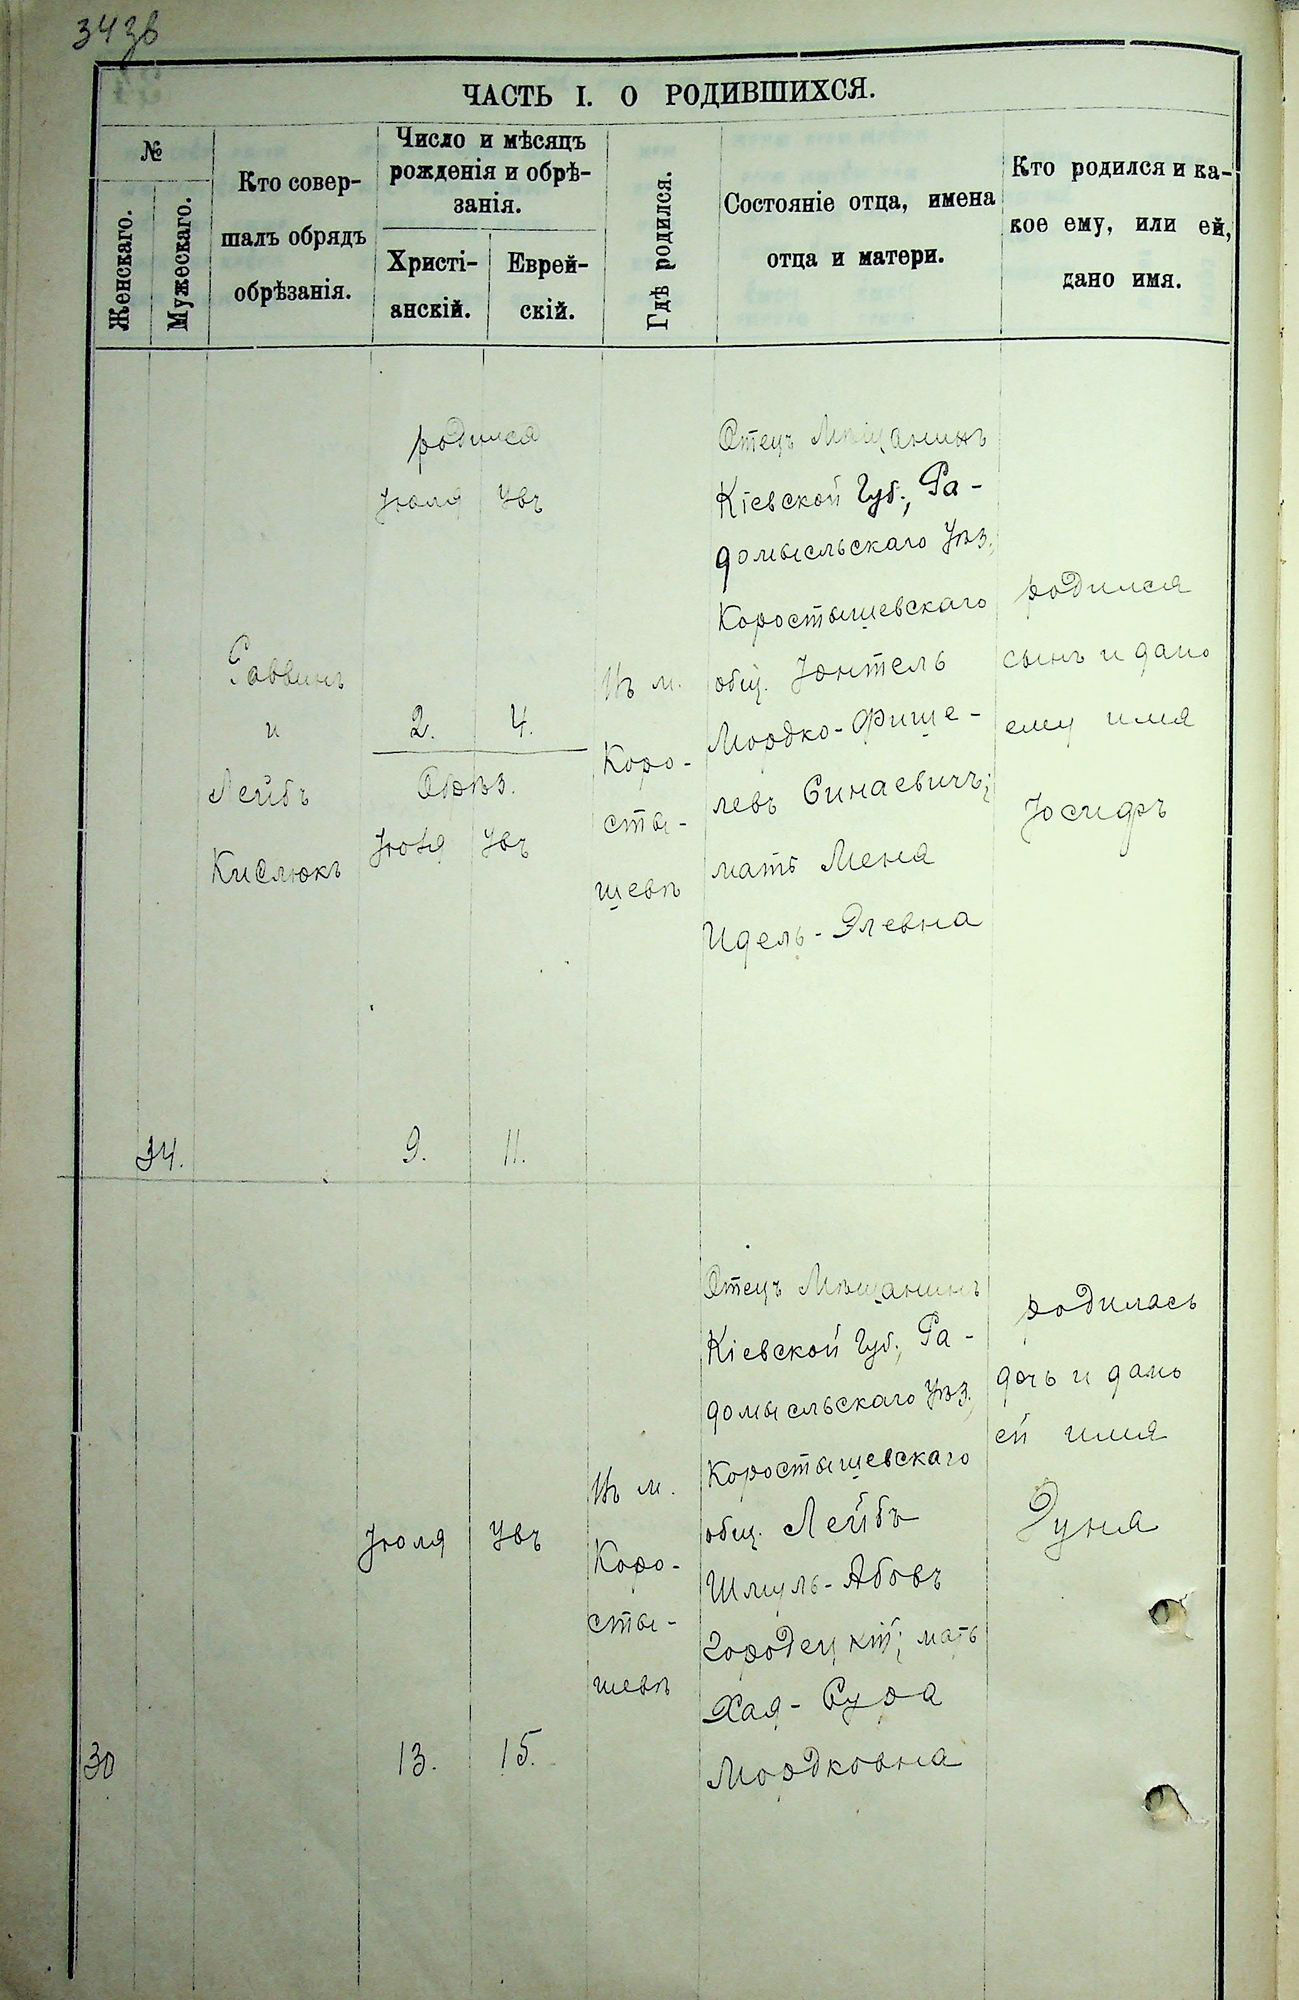 343в
ЧАСТЬ I. О РОДИВШИХСЯ.
№
Женскаго.
Мужескаго.
Кто совер-
шалъ обрядъ
обрѣзанія.
Число и мѣсяцъ
рожденія и обрѣ-
занія.
Христі-
анскій.
Еврей-
скій.
Гдѣ родился.
Состояніе отца, имена
отца и матери.
Кто родился и ка-
кое ему, или ей,
дано имя.
34.
Раввинъ
и
Лейбъ
Кислюкъ
родился
Іюля
2.
Обрѣз.
Іюля
9.
4.
11.
Въ м.
Коро-
сты-
шевѣ
Отецъ Мѣщанинъ
Кіевской Губ., Ра-
домысльскаго Уѣз.,
Коростышевскаго
общ. Іонтель
Мордко-Фише-
левъ Синаевичъ;
мать Меня
Идель-Элевна
родился
сынъ и дано
ему имя
Іосифъ
30
Іюля
13.
15.
Въ м.
Коро-
сты-
шевѣ
Отецъ Мѣщанинъ
Кіевской Губ., Ра-
домысльскаго Уѣз.,
Коростышевскаго
общ. Лейбъ
Шмуль-Абовъ
Городецкій; мать
Хая-Сура
Мордковна
родилась
дочь и дано
ей имя
Дуня